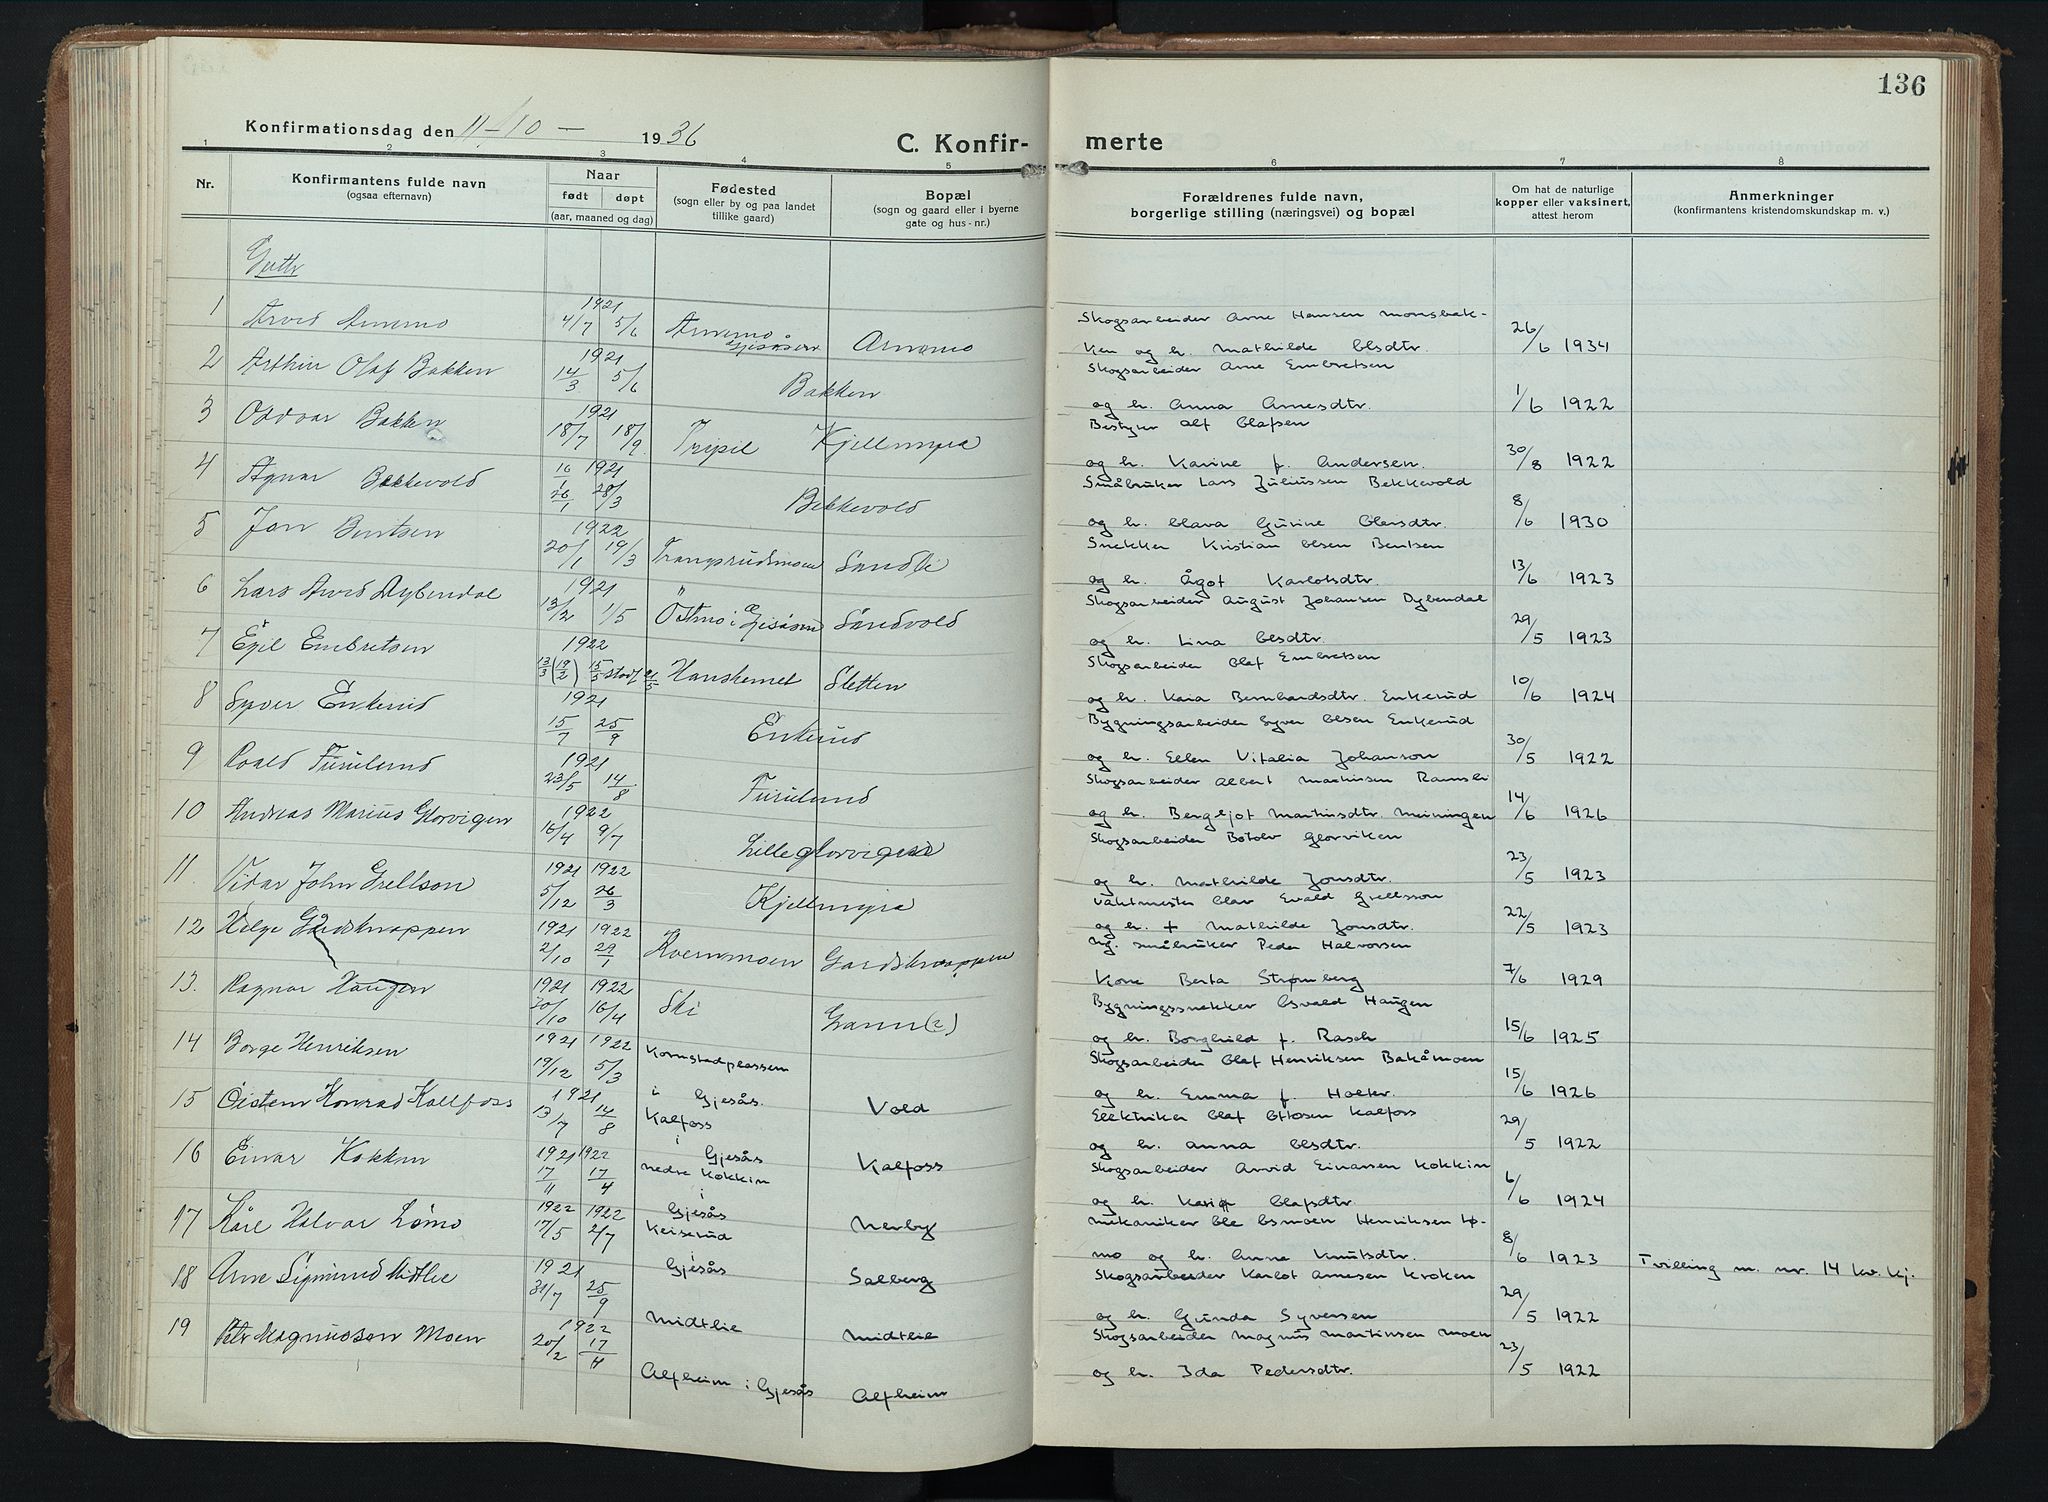 136
Konfirmationsdag den 11-10- 1936
C. Konfir- merte
1 2 3 4 5 6 7 8
Nr.
Konfirmantens fulde navn
(ogsaa efternavn)
Naar
født døpt
(aar, maaned og dag)
Fødested
(sogn eller by og paa landet
tillike gaard)
Bopæl
(sogn og gaard eller i byerne
gate og hus-nr.)
Forældrenes fulde navn,
borgerlige stilling (næringsvei) og bopæl
Om hat de naturlige
kopper eller vaksinert,
attest herom
Anmerkninger
(konfirmantens kristendomskundskap m. v.)
Gutter
1 Arvid Arnemo 1921 4/7 5/6 Arnemo Gjesåsen Arnemo Skogsarbeider Arne Hansen Monsbak-
ken og h. Mathilde Olsdtr. 26/6 1934
2 Arthur Olaf Bakken 1921 14/3 5/6 Bakken Skogsarbeider Arne Embretsen
og h. Anna Arnesdtr. 1/6 1922
3 Oddvar Bakken 1921 18/7 18/9 Trysil Kjellmyra Bestyrer Alf Olafsen
og h. Karine f. Andersen. 30/8 1922
4 Agnar Bekkevold 1921 26/1 28/3 Bekkevold Småbruker Lars Juliussen Bekkevold
og h. Olava Gurine Olersdtr. 8/6 1930
5 Jan Bentsen 1922 20/1 19/3 Trangsrudsmoen Sandli Snekker Kristian Olsen Bentsen
og h. Ågot Karlotsdtr. 13/6 1923
6 Lars Arvid Dybendal 1921 13/2 1/5 Östmo i Gjesåsen Sandvold Skogsarbeider August Johansen Dybendal
og h. Lina Olsdtr. 29/5 1923
7 Egil Embretsen 1922 13/3 (19/2) 15/5 stad 21/5 Hanskemet Sletten Skogsarbeider Olaf Embretsen
og h. Kaia Bernhardsdtr. Enkerud 10/6 1924
8 Syver Enkerud 1921 15/7 25/9 Enkerud Bygningsarbeider Syver Olsen Enkerud
og h. Ellen Vitalia Johanson 30/5 1922
9 Roald Furulund 1921 23/5 14/8 Furulund Skogsarbeider Albert Martinsen Ramsli
og h. Bergljot Martinsdtr. Meiningen 14/6 1926
10 Andreas Marius Glorvigen 1922 16/4 9/7 Lilleglorvigen Skogsarbeider Botolv Glorviken
og h. Mathilde Jonsdtr. 23/5 1923
11. Vidar John Grellson 1921 1922 5/12 26/3 Kjellmyra Vaktmester Olav Evald Grellsson
og h. + Mathilde Jonsdtr. 22/5 1923
12 Helge Gardsknappen 1921 1922 2/10 29/1 Kvernmoen Gardsknappen Ug. småbruker Peder Halvorsen
Kone Berta Strømberg 7/6 1929
13. Ragnar Haugen 1921 1922 30/10 16/4 Ski Grann(?) Bygningssnekker Osvald Haugen
og h. Borghild f. Rasch 15/6 1925
14 Borge Henriksen 1921 1922 19/12 5/3 Kornstadplassen i Gjesås. Vold Skogsarbeider Olaf Henriksen Bakåmoen
og h. Emma f. Holter. 15/6 1926
15 Oistein Konrad Kallfoss 1921 13/7 14/8 Kalfoss i Gjesås Kalfoss Elektriker Olaf Ottosen Kalfoss
og h. Anna Olsdtr. 29/5 1922
16 Einar Kokkin 1921 1922 17/11 17/4 Nedre Kokkin i Gjesås Nerby Skogsarbeider Arvid Einarsen Kokkin
og h. Karin Olafsdtr. 6/6 1924
17 Kåre Halvar Lömo 1922 1922 17/5 2/7 Keiserud i Gjesås Solberg Mekaniker Ole Osmoen Henriksen Lø-
mo og h. Anna Knutsdtr. 8/6 1923 Tvilling m. nr. 14 kv. kj.
18 Arne Sigmund Midtlie 1921 31/7 25/9 Midtlie Midtlie Skogsarbeider Karlot Arnesen Kroken
og h. Gunda Syversen 29/5 1922
19 Petr Magnusson Moen 1922 20/2 17/4 Alfheim i Gjesås Alfheim Skogsarbeider Magnus Martinsen Moen
og h. Ida Pedersdtr. 23/5 1922